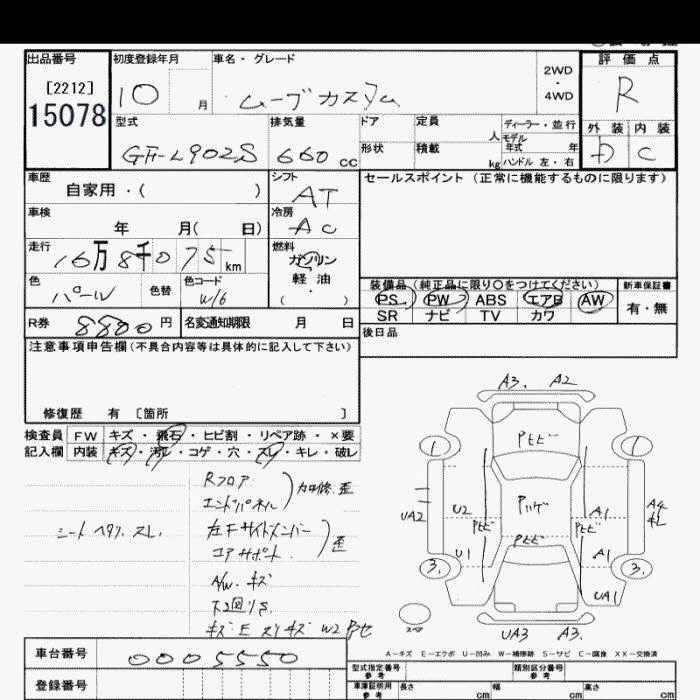 出品番号
[2212]
15078
初度登録年月
10 月
車名・グレード
ムーブカスタム
2WD
・
4WD
評価点
R
外装 内装
D C
型式
GF-L902S
排気量
660 cc
ドア
形状
定員
人
積載
kg
ディーラー・並行
モデル
年式 年
ハンドル 左・右
車歴
自家用・( )
シフト
AT
セールスポイント(正常に機能するものに限ります)
車検
年 月( 日)
冷房
AC
走行
16万8千075km
燃料
ガソリン
軽油
( ・ )
色
パール
色替
色コード
W16
装備品(純正品に限り○をつけてください)
PS PW ABS エアB AW
SR ナビ TV カワ
新車保証書
有・無
R券
8800円
名変通知期限 月 日
後日品
注意事項申告欄(不具合内容等は具体的に記入して下さい)
修復歴 有 〔箇所 〕
検査員
記入欄
FW キズ・飛石・ヒビ割・リペア跡・×要
内装 キズ・汚レ・コゲ・穴・スレ・キレ・破レ
シートヘタリ.スレ.
Rフロア
エンドパネル
加修.歪
左Fサイドメンバー
コアサポート.
歪
A/W.キズ
下回りS
A3. A2
Pヒビ
1 1
UA2
U2
Pヒビ
Pハゲ
A1
Pヒビ
A4
キレ
Pヒビ
U1
A1
3. 3.
UA1
スペア
UA3 A3.
A-キズ E-エクボ U-凹み W-補修跡 S-サビ C-腐食 XX-交換済
車台番号
0005550
登録番号
型式指定番号
参考
類別区分番号
参考
車庫証明用
参考
長さ cm
幅 cm
高さ cm